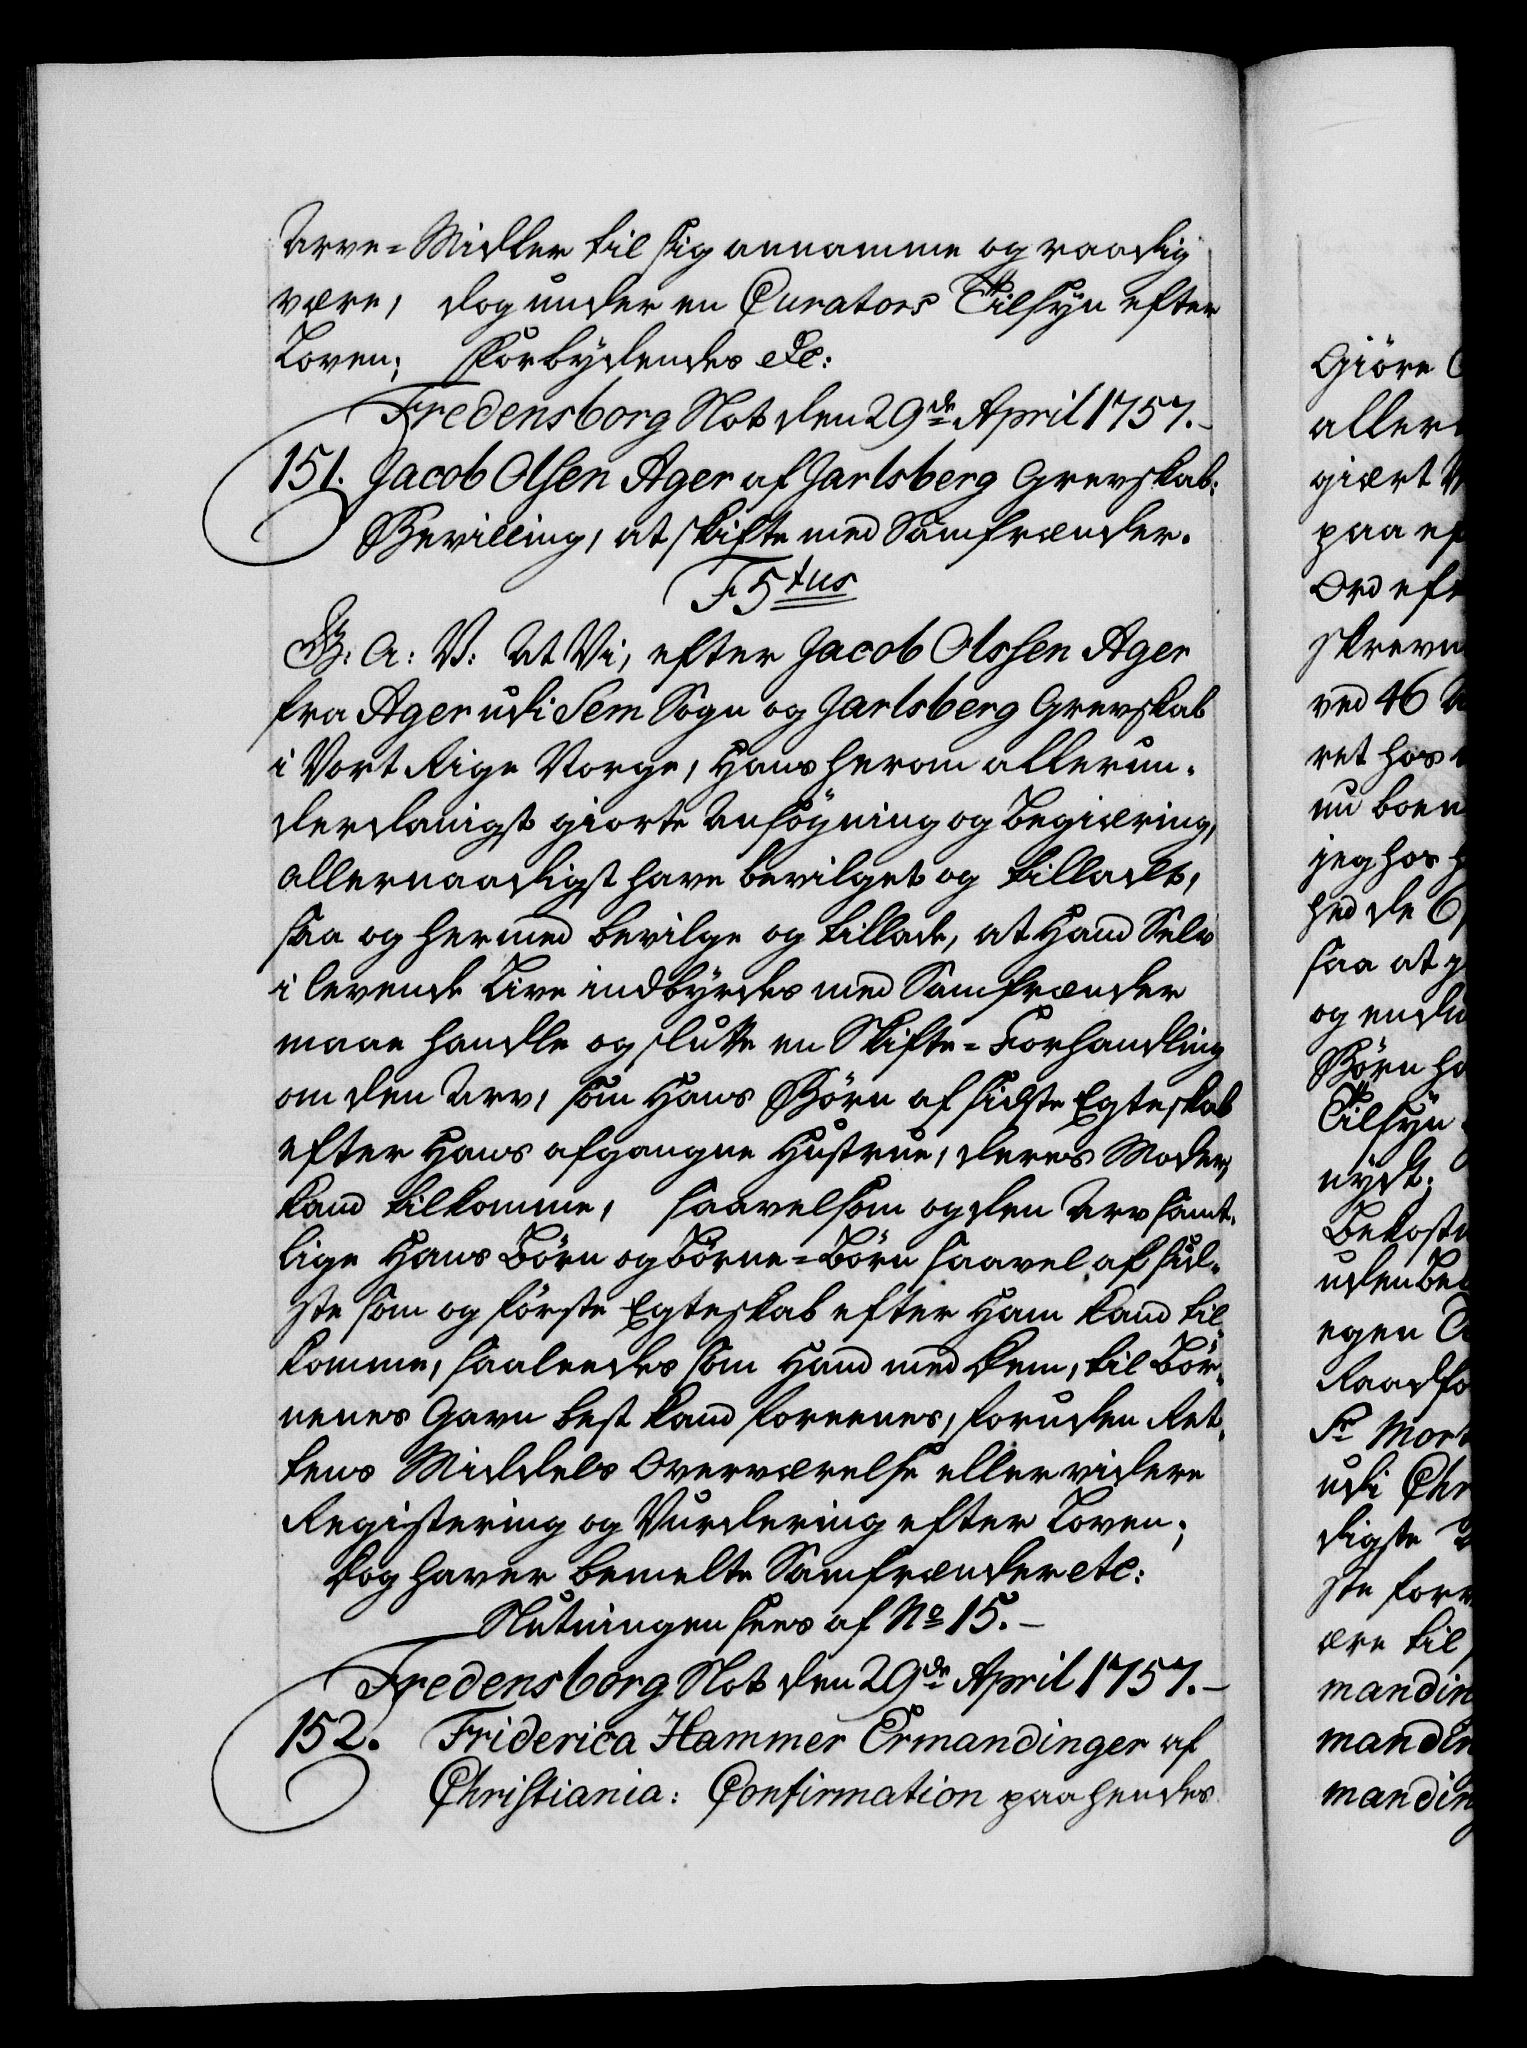 Arve=Midler til sig annamme og raadig
være, dog under en Curators Tilsyn efter
Loven; Forbydendes etc:
Fredensborg Slot den 29de April 1757.-
151. Jacob Olsen Ager af Jarlsberg Grevskab:
Bevilling, at skifte med Samfrænder.
F5tus
G: A: V: At Vi, efter Jacob Olssen Ager
fra Ager udi Sem Sogn og Jarlsberg Grevskab
i Vort Rige Norge, Hans herom allerun-
derdanigst giorte Ansøgning og Begiæring,
allernaadigst have bevilget og tilladt,
saa og hermed bevilge og tillade, at Hand Selv
i levende Live indbyrdes med Samfrænder
maae handle og slutte en Skifte=Forhandling
om den Arv, som Hans Børn af sidste Egteskab
efter Hans afgangne Hustrue, deres Moder,
kand tilkomme, saavelsom og den Arv samt-
lige Hans Børn og Børne=Børn saavel af sid-
ste som og første Egteskab efter Ham kand til-
komme, saaleedes som Hand med dem, til Bør-
nenes Gavn best kand foreenes, foruden Ret-
tens Middels Overværelse eller videre
Registering og Vurdering efter Loven;
Dog haver bemelte Samfrænder etc:
Slutningen sees af No 15.-
Fredensborg Slot den 29de April 1757.-
152. Friderica Hammer Ermandinger af
Christiania: Confirmation paa hendes
Giöre
giært
paa
Ord
ved 46
ret hos
nu
jeg hos
hed de
saa at
og
Børn
Tilsyn
nydt;
egen
Sr
udi
digste
ste
ære til